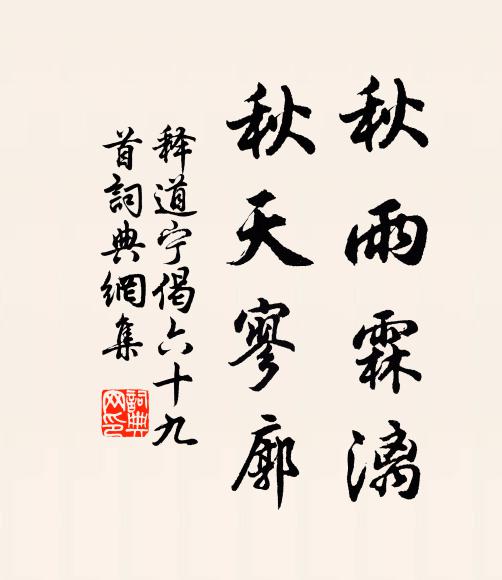 秋雨霖漓
秋天寥廓
释道宁偈六十九
首詞典網集
詞典
网印